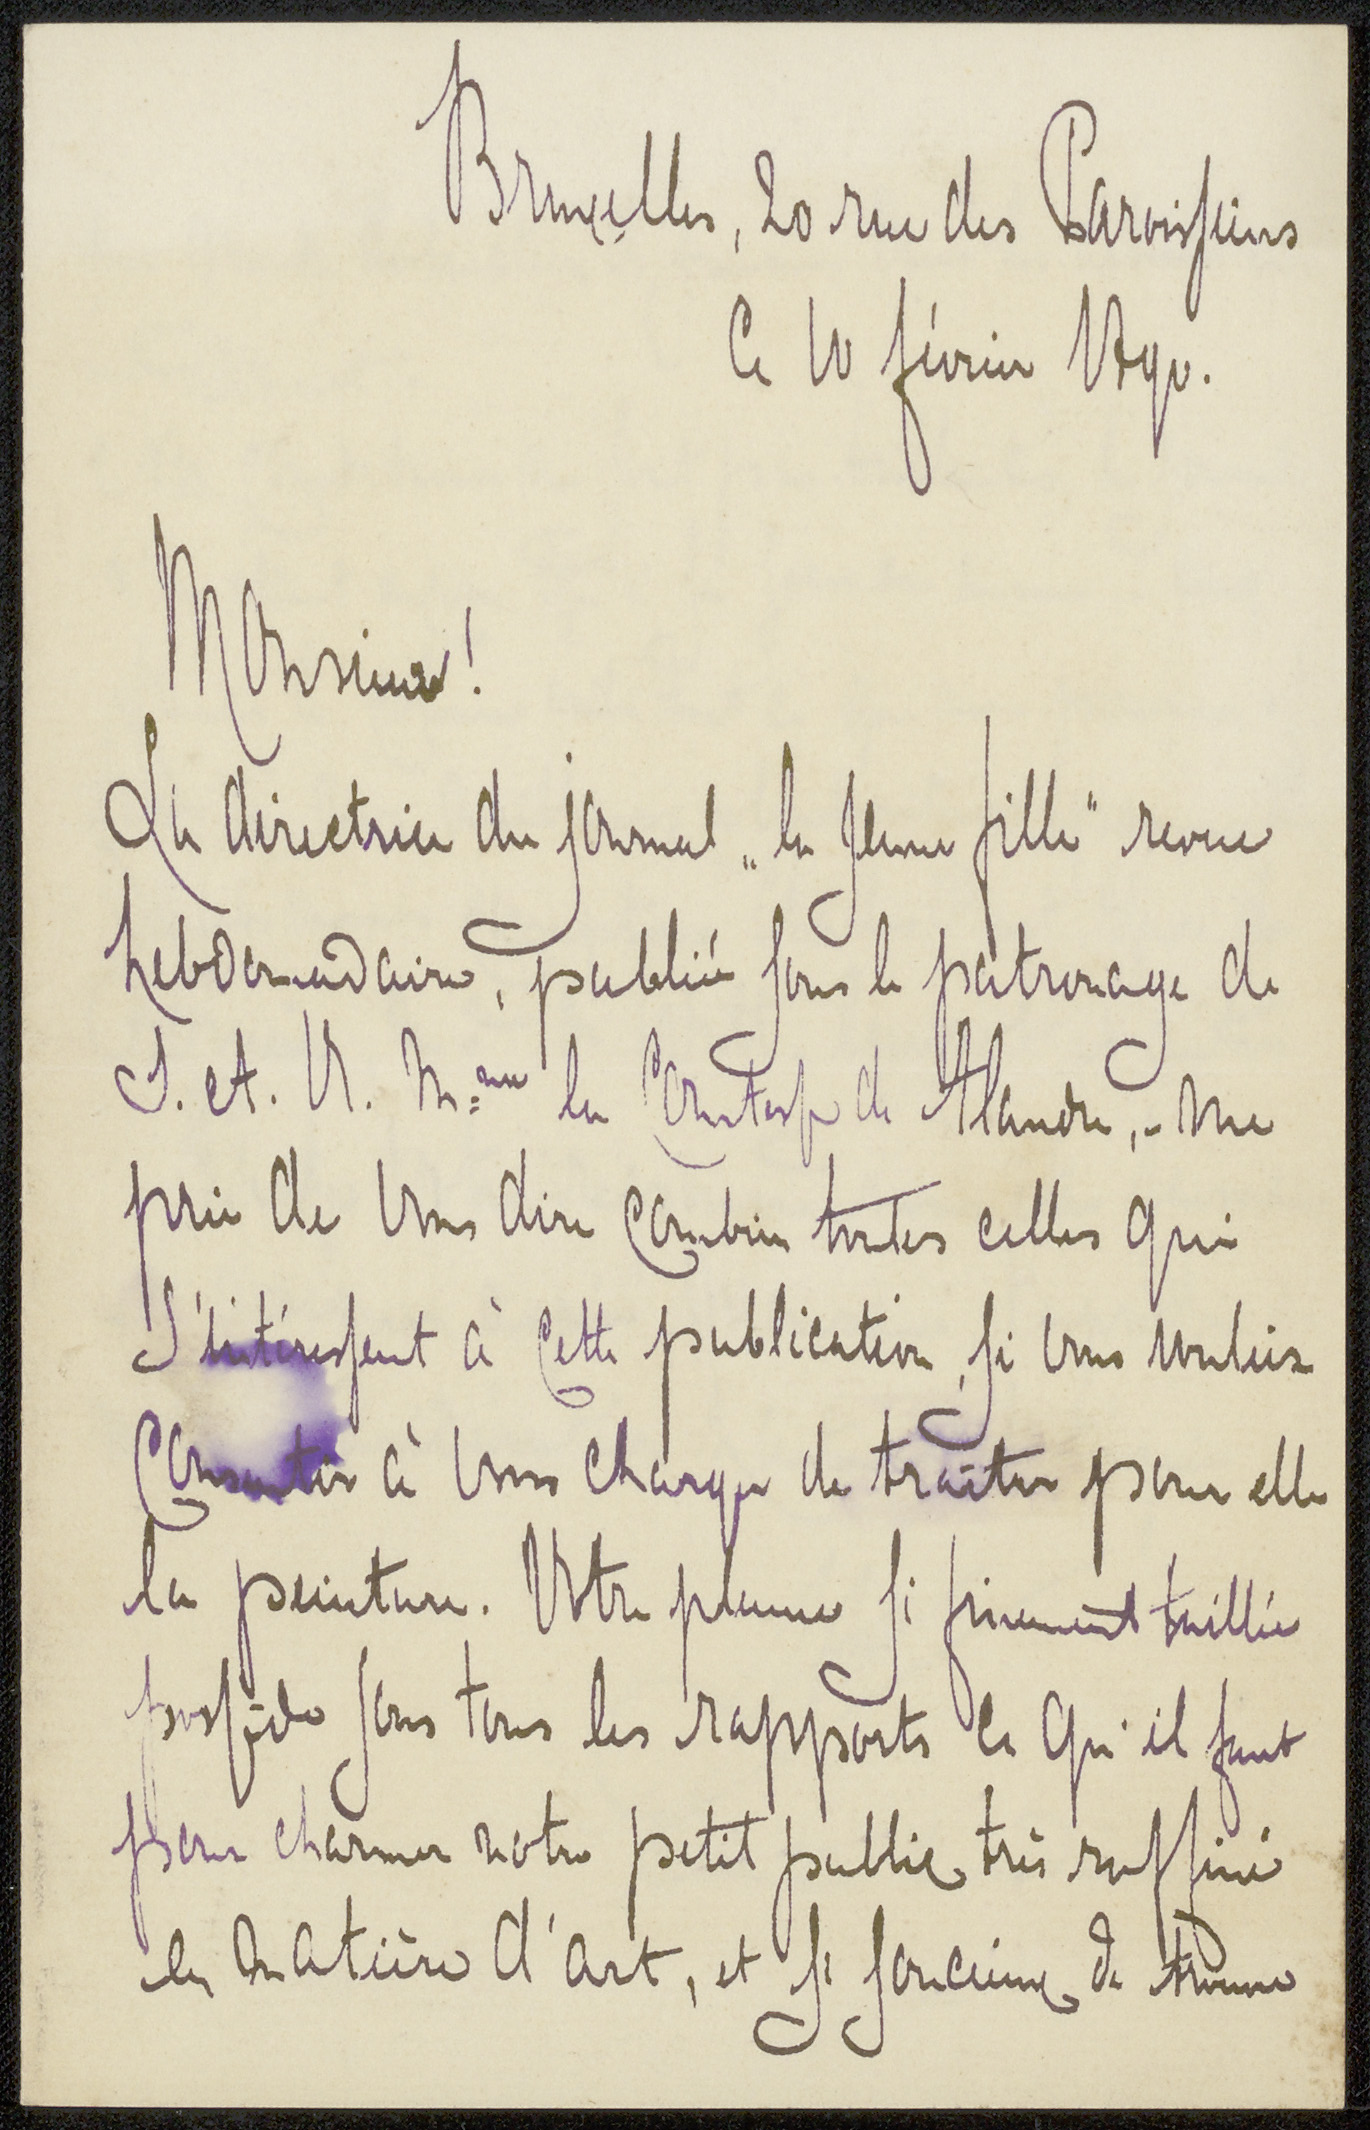 Bruxelles, 20 rue des Paroissiens
Ce 10 février 1890.
Monsieur!
La directrice du journal „la Jeune fille" revue
hebdomadaire, publiée sous le patronage de
S. A. R. Mme la Comtesse de Flandre, - me
prie de vous dire combien toutes celles qui
s'intéressent à cette publication, si vous vouliez
consentir à vous charger de traiter pour elle
la peinture. Votre plume si finement taillée
possède sous tous les rapports ce qu'il faut
pour charmer notre petit public très raffiné
en matière d'art, et si soucieux de